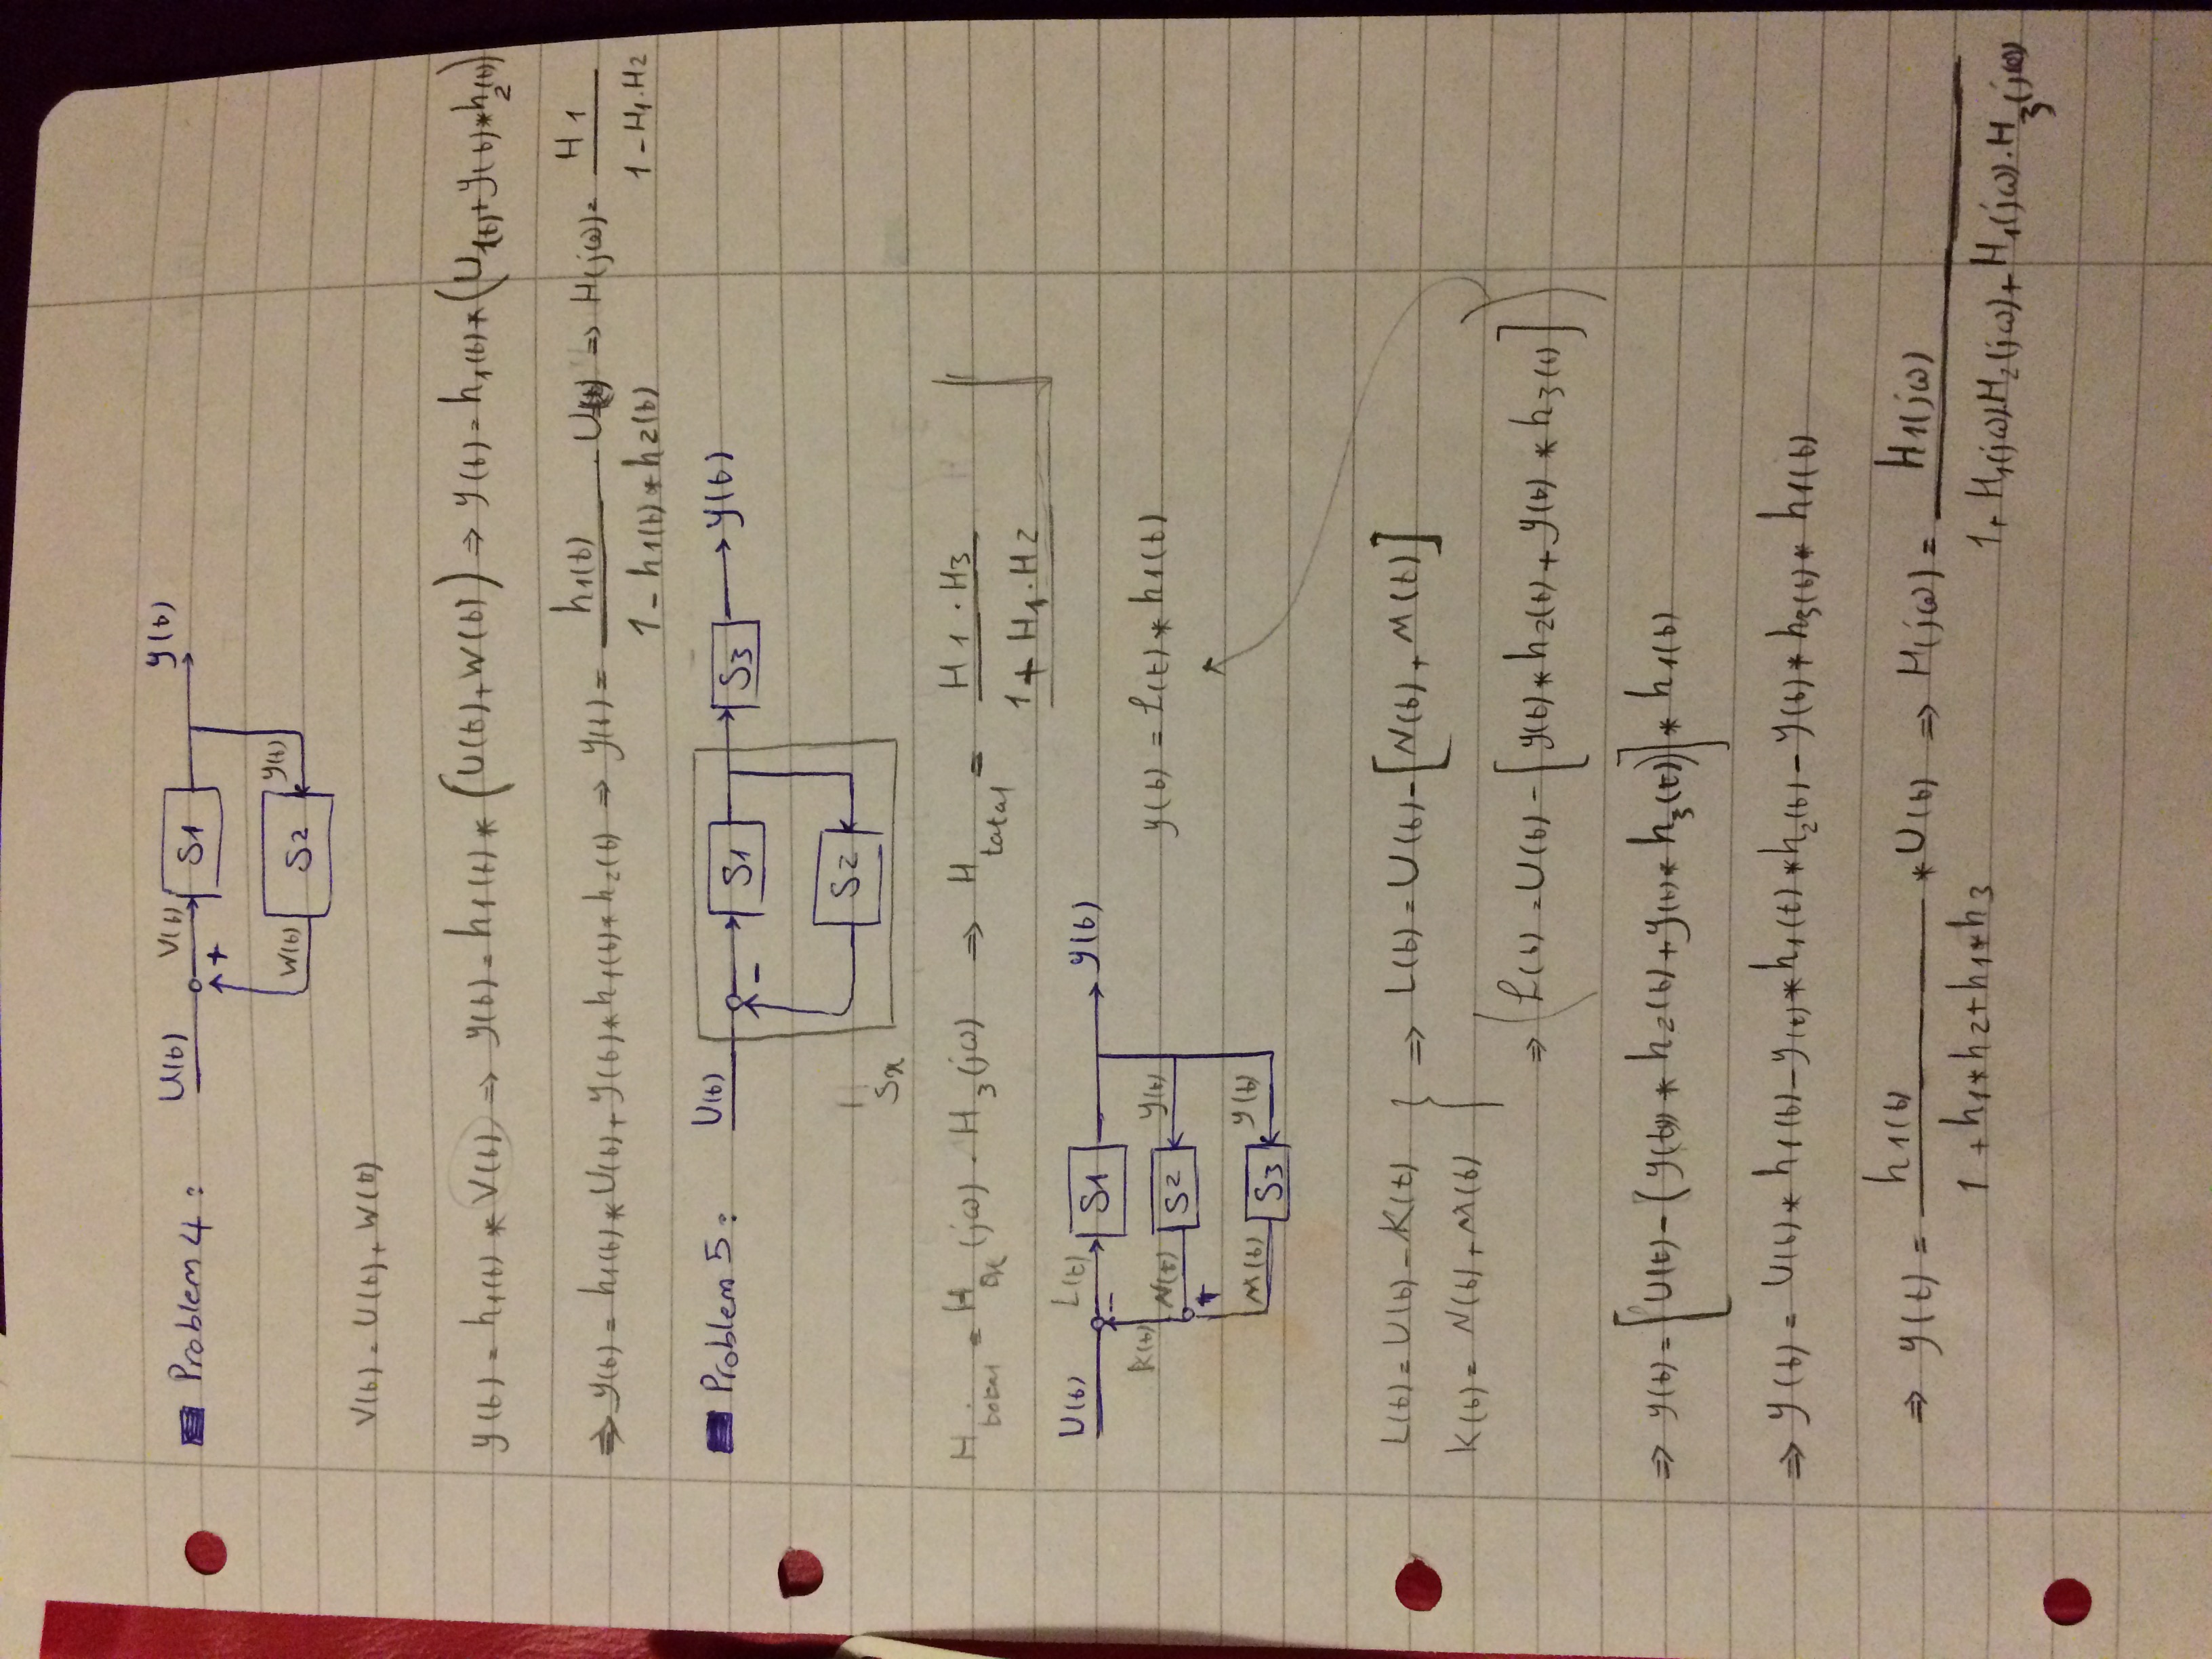 Problem 4 :
U(t) V(t) S1 y(t)
+
W(t) S2 y(t)
V(t) = U(t) + W(t)
y(t) = h1(t) * V(t) ⇒ y(t) = h1(t) * (U(t) + W(t)) ⇒ y(t) = h1(t) * (U1(t) + y(t) * h2(t))
⇒ y(t) = h1(t) * U(t) + y(t) * h1(t) * h2(t) ⇒ y(t) = h1(t) / 1 - h1(t) * h2(t) · U(t) ⇒ H(jω) = H1 / 1 - H1.H2
Problem 5 :
U(t) - S1 S3 y(t)
S2
Sx
H total = Hx (jω) . H3 (jω) ⇒ H total = H1 . H3 / 1 + H1 . H2
U(t) L(t) S1 y(t)
-
K(t) N(t) S2 y(t)
+
M(t) S3 y(t)
y(t) = L(t) * h1(t)
L(t) = U(t) - K(t)
K(t) = N(t) + M(t)
⇒ L(t) = U(t) - [N(t) + M(t)]
⇒ (L(t) = U(t) - [y(t) * h2(t) + y(t) * h3(t)])
⇒ y(t) = [U(t) - (y(t) * h2(t) + y(t) * h3(t))] * h1(t)
⇒ y(t) = U(t) * h1(t) - y(t) * h1(t) * h2(t) - y(t) * h3(t) * h1(t)
⇒ y(t) = h1(t) / 1 + h1*h2 + h1*h3 * U(t) ⇒ H(jω) = H1(jω) / 1 + H1(jω).H2(jω) + H1(jω).H3(jω)